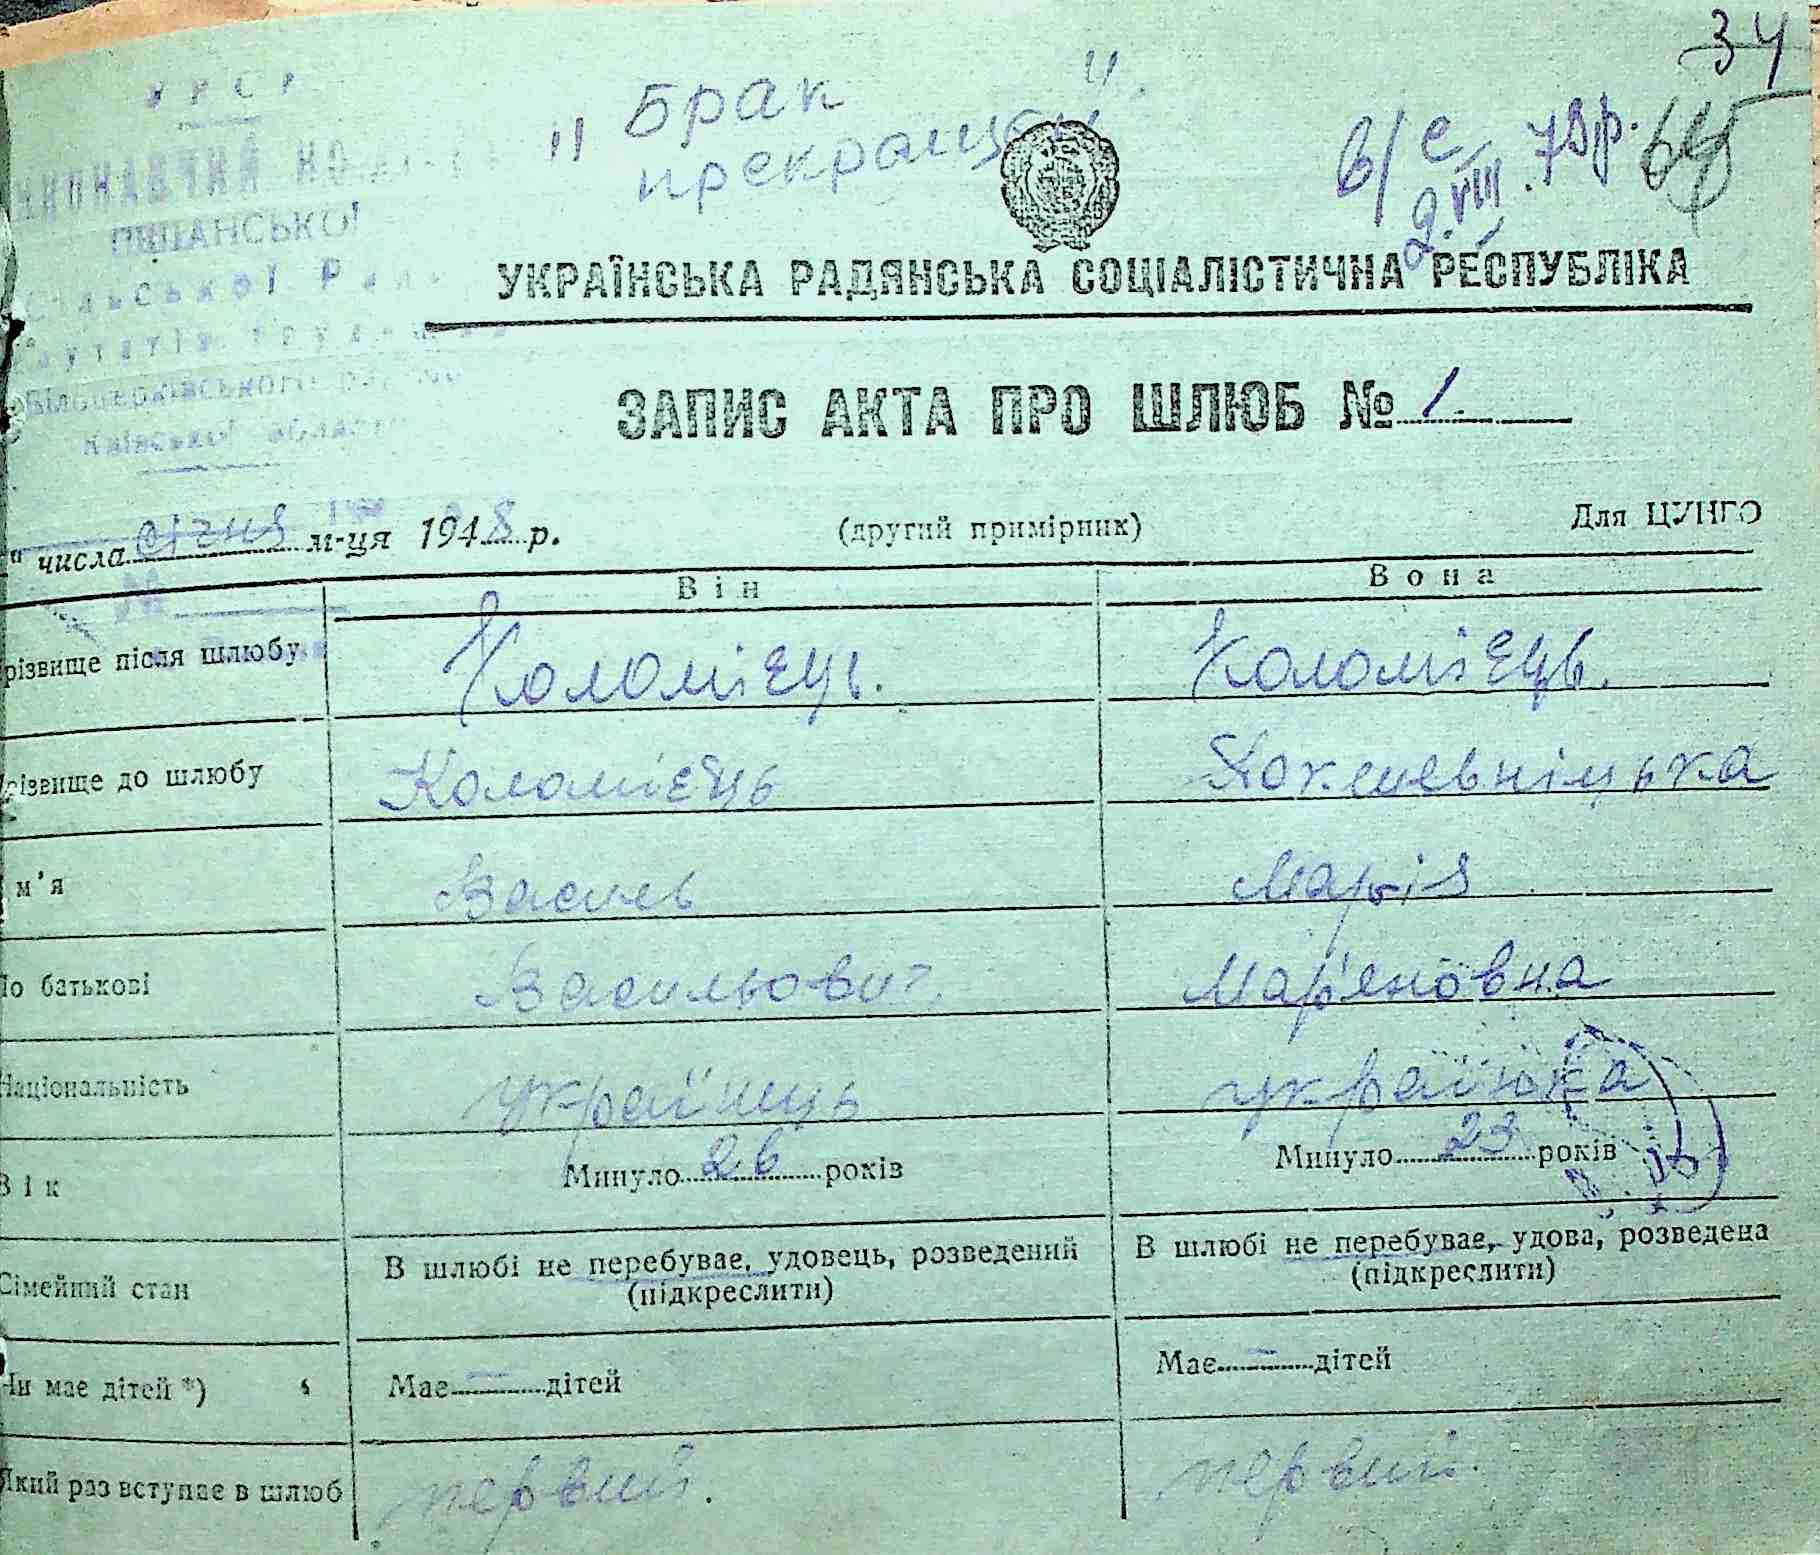 34
УРСР
" Брак
прекращен "
в/с
2.VIII.78р.
ВИКОНАВЧИЙ
ПИЩАНСЬКОЇ
Сільської Ради
Білоцерківського
Київської області
УКРАЇНСЬКА РАДЯНСЬКА СОЦІАЛІСТИЧНА РЕСПУБЛІКА
ЗАПИС АКТА ПРО ШЛЮБ № 1
" числа січня м-ця 1948 р. (другий примірник) Для ЦУНГО
Він Вона
різвище після шлюбу Коломієць. Коломієць.
різвище до шлюбу Коломієць
м'я Василь Марія
о батькові Васильович. Мар'яновна
Національність українець українка
Вік Минуло 26 років Минуло 23 років
Сімейний стан В шлюбі не перебуває, удовець, розведений В шлюбі не перебуває, удова, розведена
(підкреслити) (підкреслити)
Чи має дітей *) Має — дітей Має — дітей
Який раз вступає в шлюб первий. первий.